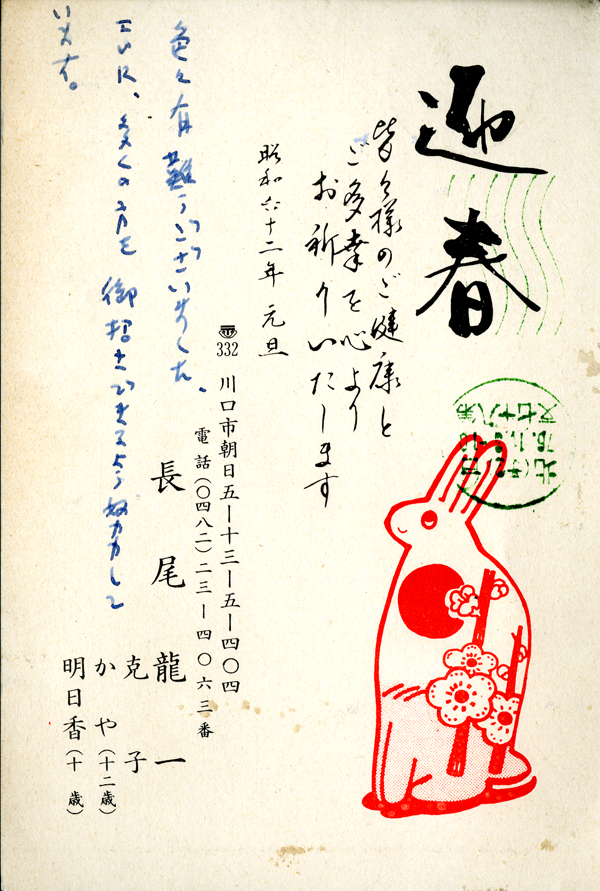 迎春
皆々様のご健康と
ご多幸を心より
お祈りいたします
昭和六十二年 元旦
332 川口市朝日五ー十三ー五ー四〇四
電話(〇四八二)二三ー四〇六三番
長尾龍一
克子
かや(十二歳)
明日香(十歳)
色々有難うございました、
多くの方を御招きできるよう努力して
います。